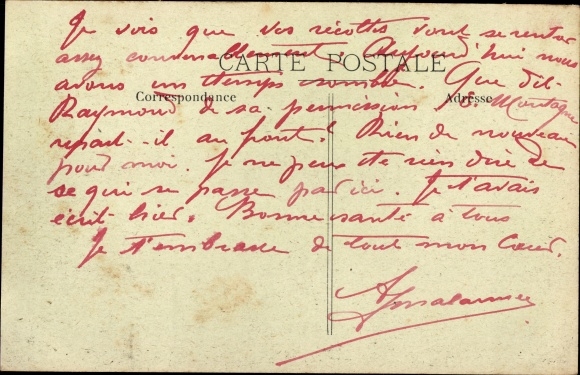 Je vois que vos récoltes vont se rentrer
assez convenablement. Aujourd'hui nous
CARTE POSTALE
avons un temps sombre. Que dit-
Correspondance
Adresse
Raymond de sa permission. Montagne
repart-il au front? Rien de nouveau
pour moi. Je ne peux te rien dire de
ce qui se passe par ici. Je t'avais
écrit hier. Bonne santé à tous
Je t'embrasse de tout mon Cœur.